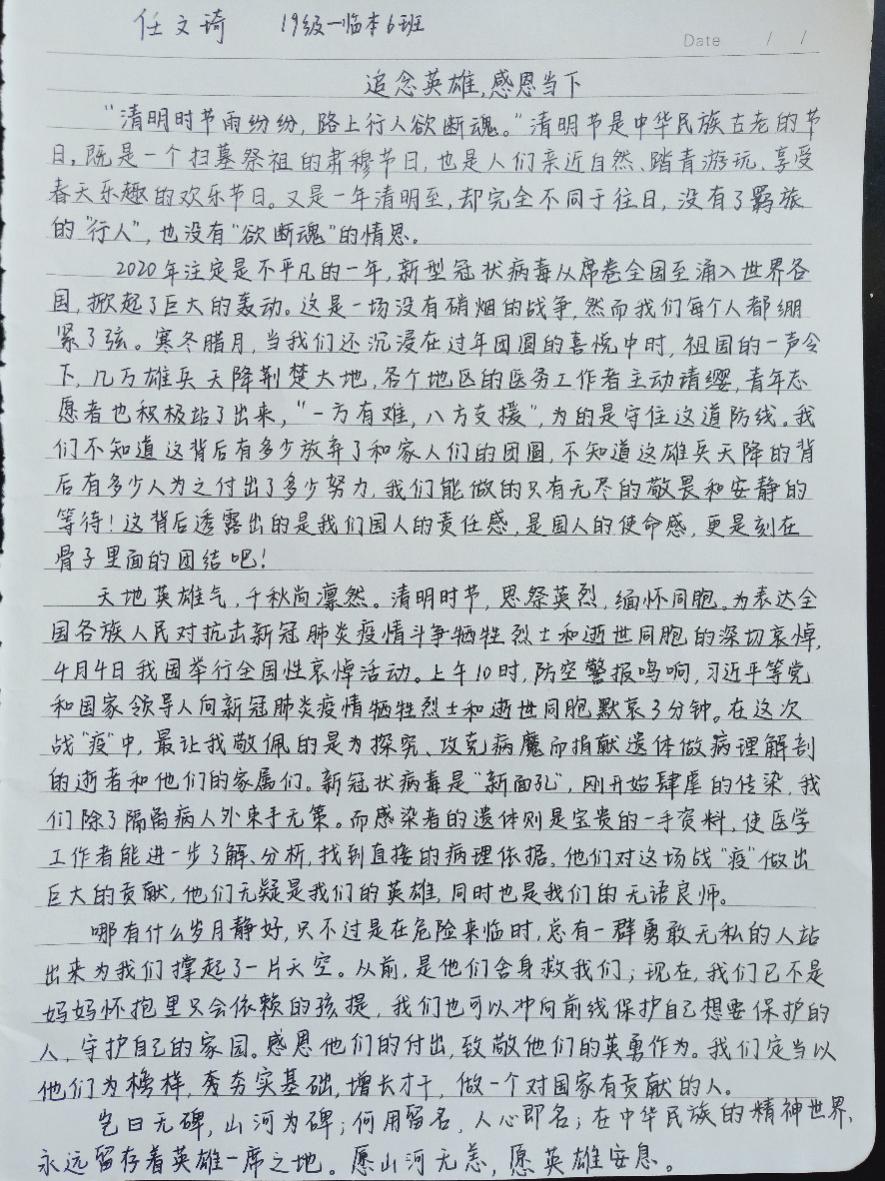 任文琦 19级一临本6班
Date / /
追念英雄,感恩当下
“清明时节雨纷纷,路上行人欲断魂。”清明节是中华民族古老的节
日,既是一个扫墓祭祖的肃穆节日,也是人们亲近自然、踏青游玩、享受
春天乐趣的欢乐节日。又是一年清明至,却完全不同于往日,没有了羁旅
的“行人”,也没有“欲断魂”的情思。
2020年注定是不平凡的一年,新型冠状病毒从席卷全国至涌入世界各
国,掀起了巨大的轰动。这是一场没有硝烟的战争,然而我们每个人都绷
紧了弦。寒冬腊月,当我们还沉浸在过年团圆的喜悦中时,祖国的一声令
下,几万雄兵天降荆楚大地,各个地区的医务工作者主动请缨,青年志
愿者也积极站了出来,“一方有难,八方支援”,为的是守住这道防线。我
们不知道这背后有多少放弃了和家人们的团圆,不知道这雄兵天降的背
后有多少人为之付出了多少努力,我们能做的只有无尽的敬畏和安静的
等待!这背后透露出的是我们国人的责任感,是国人的使命感,更是刻在
骨子里面的团结吧!
天地英雄气,千秋尚凛然。清明时节,恩祭英烈,缅怀同胞。为表达全
国各族人民对抗击新冠肺炎疫情斗争牺牲烈士和逝世同胞的深切哀悼,
4月4日我国举行全国性哀悼活动。上午10时,防空警报鸣响,习近平等党
和国家领导人向新冠肺炎疫情牺牲烈士和逝世同胞默哀3分钟。在这次
战“疫”中,最让我敬佩的是为探究、攻克病魔而捐献遗体做病理解剖
的逝者和他们的家属们。新冠状病毒是“新面孔”,刚开始肆虐的传染,我
们除了隔离病人外束手无策。而感染者的遗体则是宝贵的一手资料,使医学
工作者能进一步了解、分析,找到直接的病理依据,他们对这场战“疫”做出
巨大的贡献,他们无疑是我们的英雄,同时也是我们的无语良师。
哪有什么岁月静好,只不过是在危险来临时,总有一群勇敢无私的人站
出来为我们撑起了一片天空。从前,是他们舍身救我们;现在,我们已不是
妈妈怀抱里只会依赖的孩提,我们也可以冲向前线保护自己想要保护的
人,守护自己的家园。感恩他们的付出,致敬他们的英勇作为。我们定当以
他们为榜样,夯实基础,增长才干,做一个对国家有贡献的人。
岂曰无碑,山河为碑;何用留名,人心即名;在中华民族的精神世界,
永远留存着英雄一席之地。愿山河无恙,愿英雄安息。